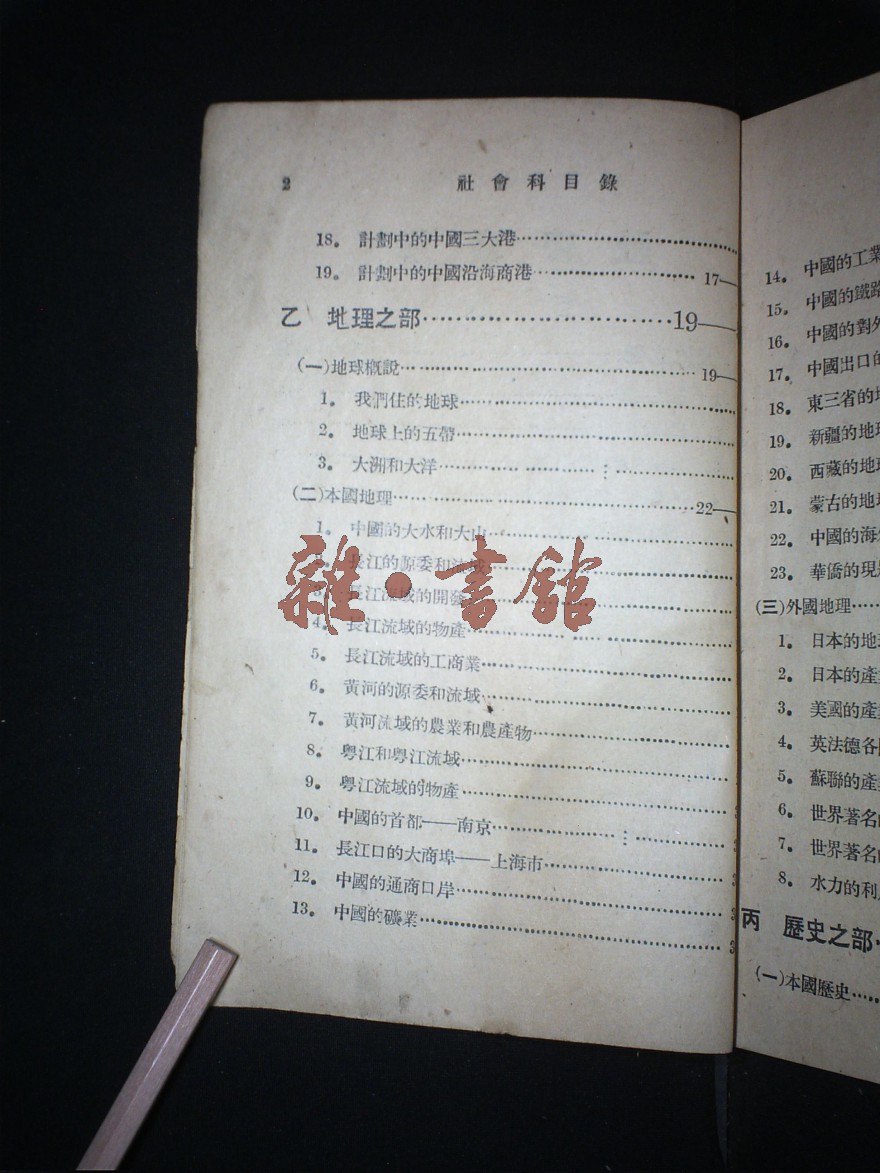 2 社會科目錄
18. 計劃中的中國三大港
19. 計劃中的中國沿海商港 17—
乙 地理之部 19—
(一)地球概說 19—
1. 我們住的地球
2. 地球上的五帶
3. 大洲和大洋
(二)本國地理 22—
1. 中國的大水和大山
2. 長江的源委和流域
3. 長江流域的開發
4. 長江流域的物產
5. 長江流域的工商業
6. 黃河的源委和流域
7. 黃河流域的農業和農產物
8. 粵江和粵江流域
9. 粵江流域的物產
10. 中國的首都——南京
11. 長江口的大商埠——上海市
12. 中國的通商口岸
13. 中國的礦業
雜·書館
14. 中國的工業
15. 中國的鐵路
16. 中國的對外
17. 中國出口的
18. 東三省的地
19. 新疆的地理
20. 西藏的地
21. 蒙古的地
22. 中國的海
23. 華僑的現
(三)外國地理
1. 日本的地
2. 日本的產
3. 美國的產
4. 英法德各
5. 蘇聯的產
6. 世界著名
7. 世界著名
8. 水力的利
丙 歷史之部
(一)本國歷史